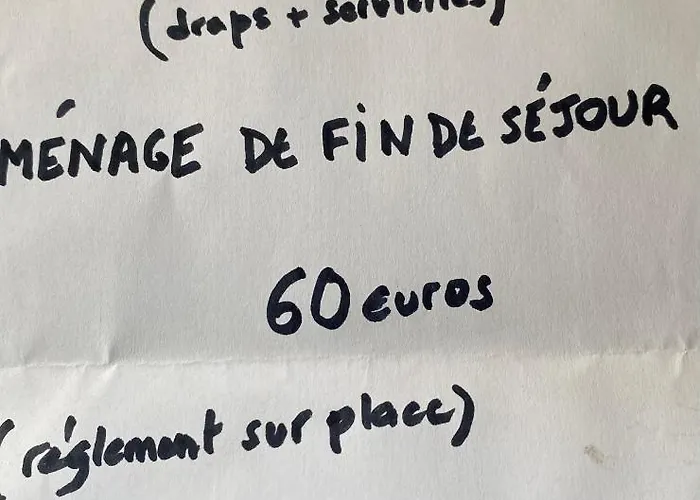 (draps + serviettes)
MÉNAGE DE FIN DE SÉJOUR
60 euros
(réglement sur place)